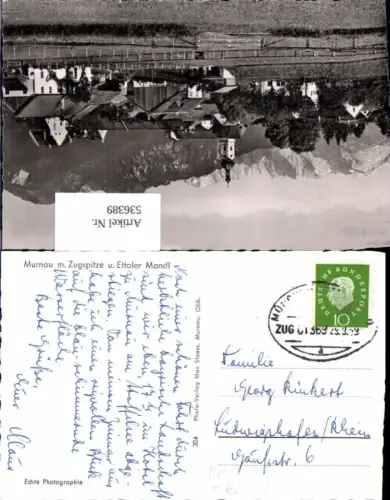 Artikel Nr.
536389
Murnau m. Zugspitze u. Ettaler Mandl
Nach einer schönen Fahrt durch
herbstliche bayrische Landschaft
sind wir eben 17.30 im Hotel
in Murnau am Staffelsee abge-
stiegen. Von meinem Zimmer aus
habe ich einen reizvollen Blick
auf die blau schimmernde
Wasserfläche.
Beste Grüße,
Euer Klaus
Echte Photographie
204 Photo-Verlag Max Stoess, Murnau, Obb.
DEUTSCHE BUNDESPOST
10
ZUG 01369
a
Familie
Georg Rinkert
Ludwigshafen/Rhein
Gaußstr. 6